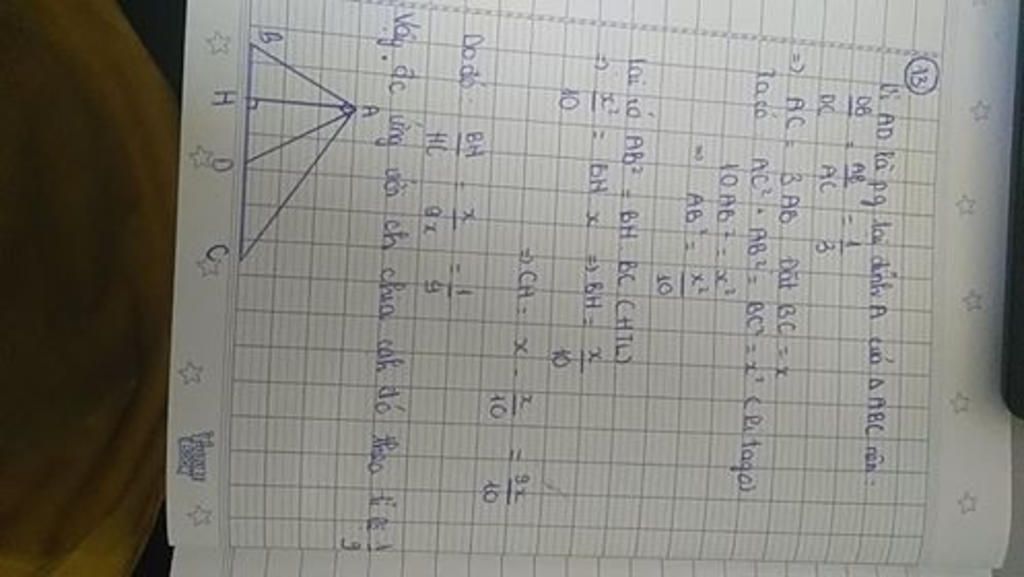 13
Vì AD là pg tại đỉnh A của ΔABC nên:
DB/DC = AB/AC = 1/3
=> AC = 3AB Đặt BC = x
Ta có AC² + AB² = BC² = x² (Pitago)
10AB² = x²
=> AB² = x²/10
Lại có AB² = BH. BC (HTL)
=> x²/10 = BH x => BH = x/10
=> CH = x - x/10 = 9x/10
Do đó: BH/HC = x/9x = 1/9
Vậy đc ứng với ch chia cah đó theo tỉ lệ 1/9
A
B H D C